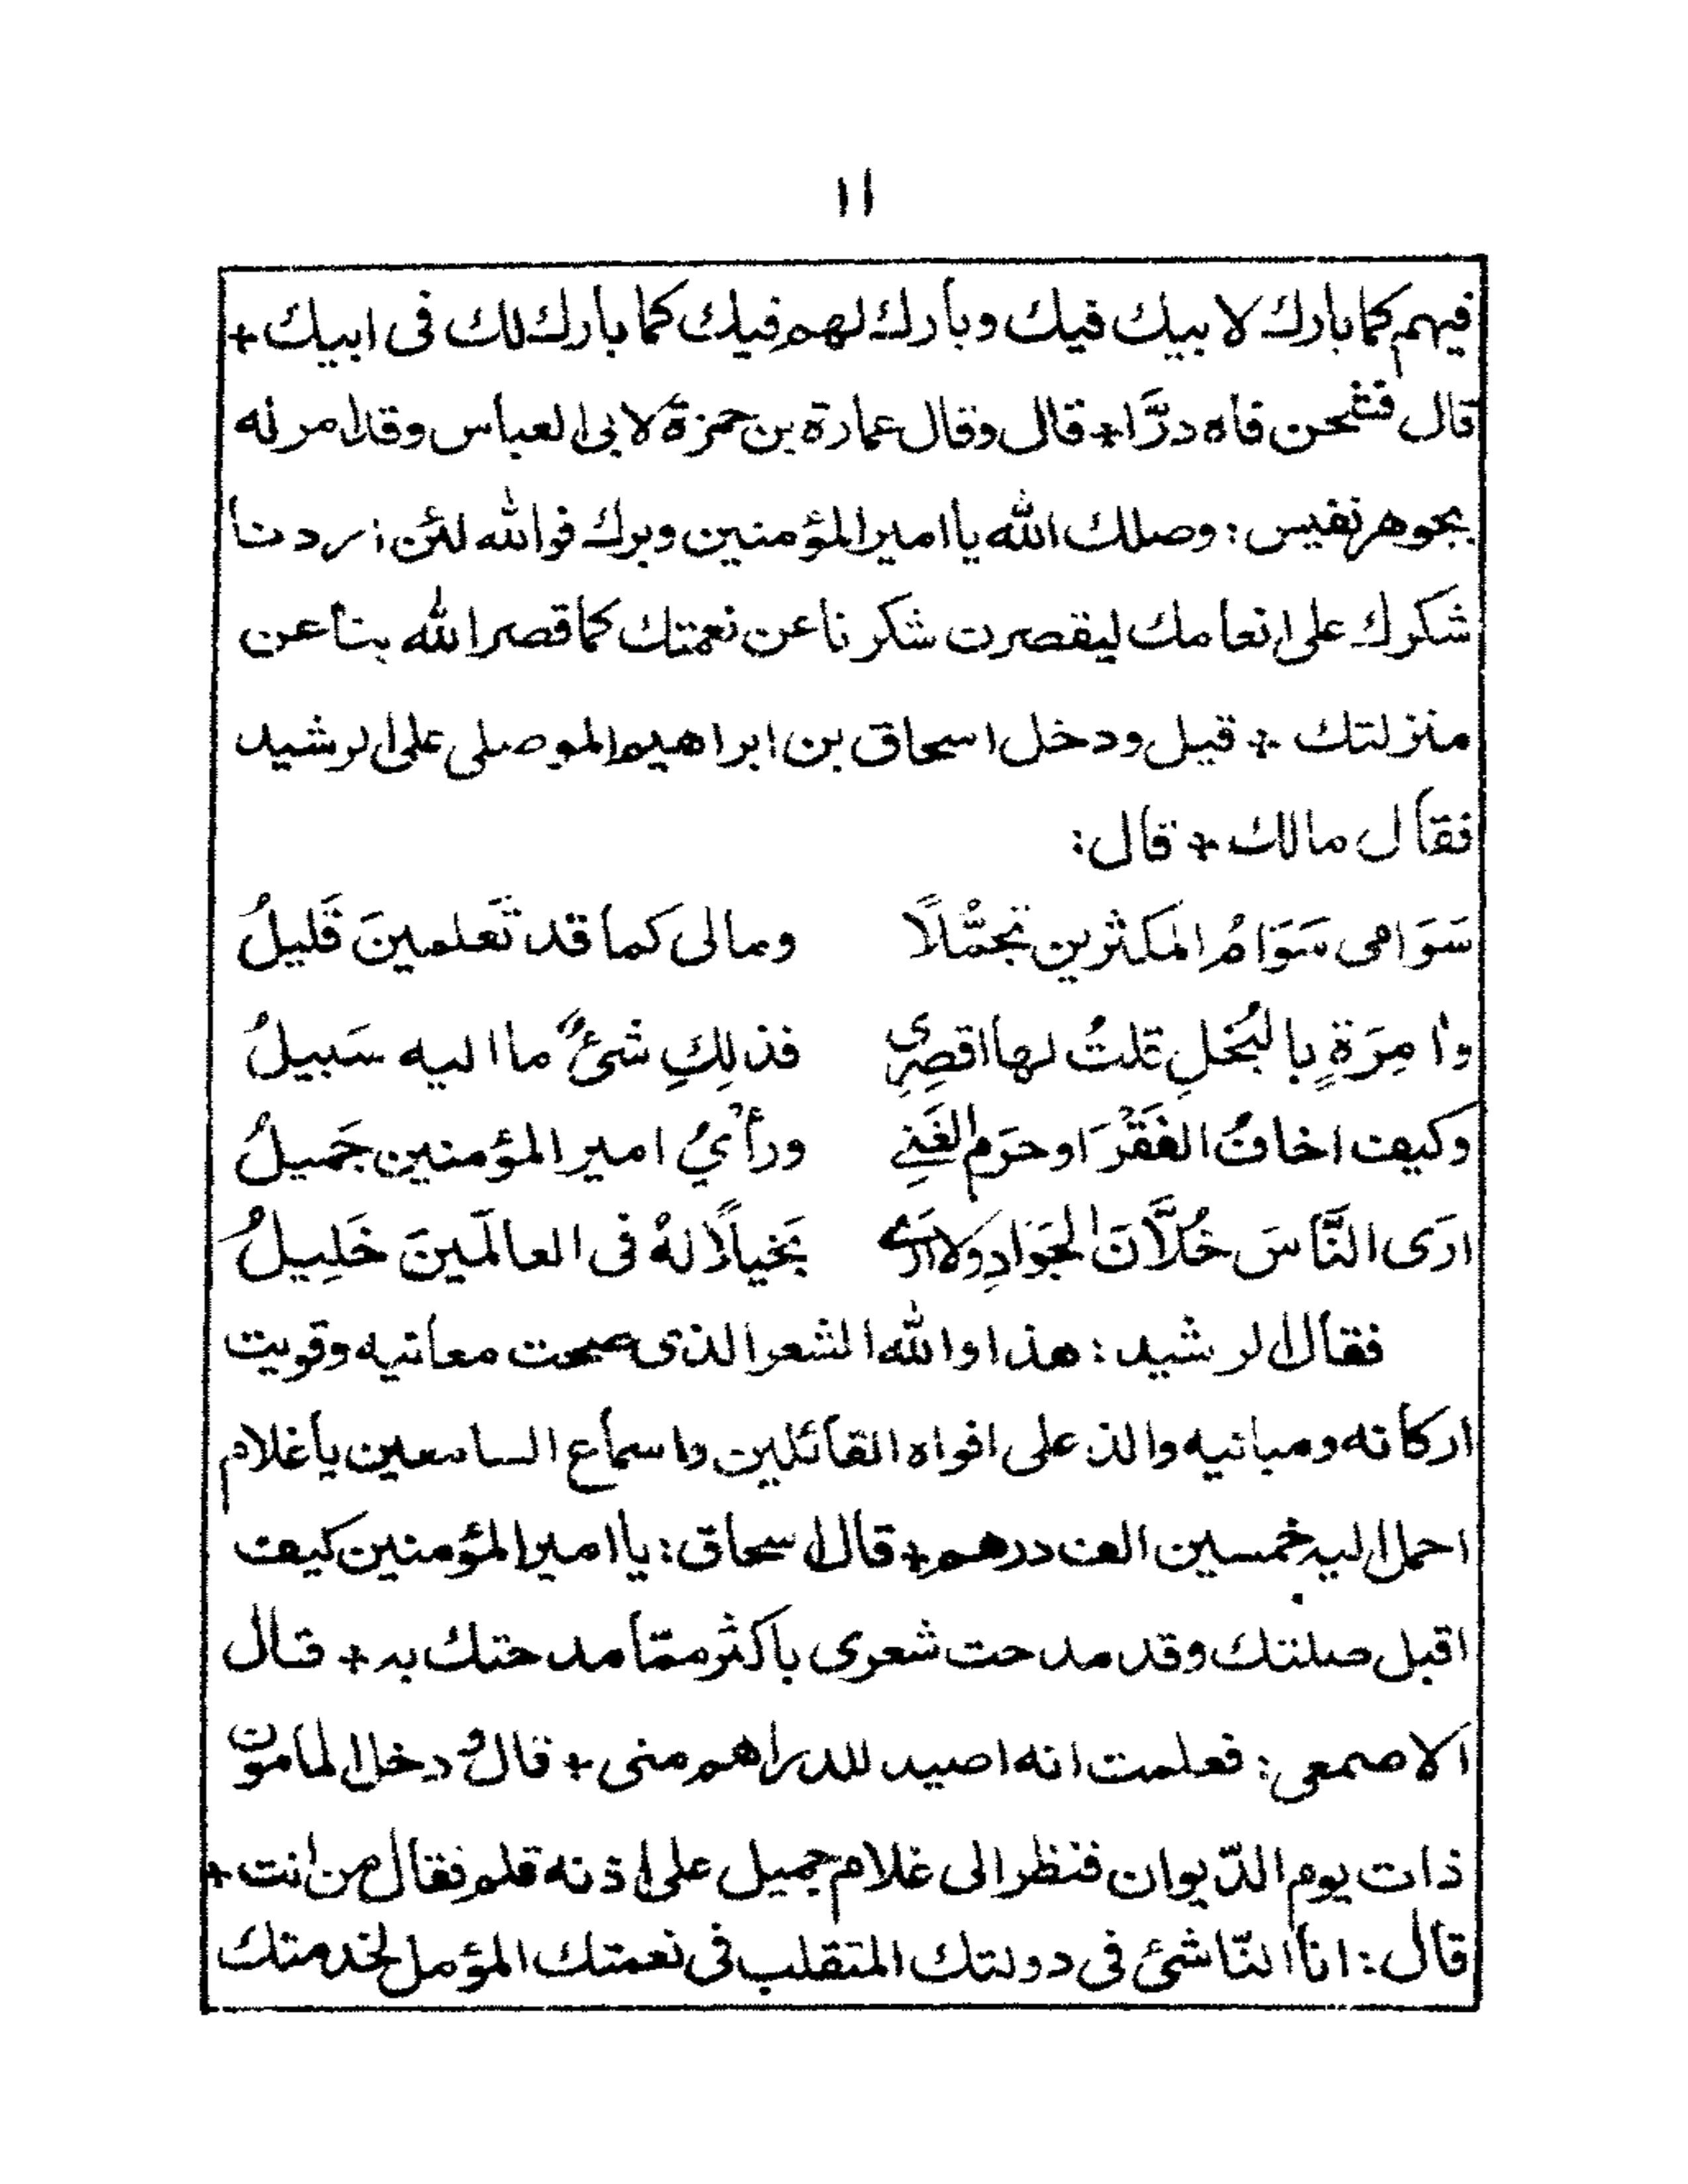 ١١
فيهم كما بارك لابيك فيك وبارك لهم فيك كما بارك لك فى ابيك +
قال فشحن فاه درًّا + قال وقال عمارة بن حمزة لابى العباس وقد امر له
بجوهر نفيس : وصلك الله يا امير المؤمنين وبرك فوالله لئن اردنا
شكرك على انعامك ليقصرن شكرنا عن نعمتك كما قصر الله بنا عن
منزلتك + قيل ودخل اسحاق بن ابراهيم الموصلى على الرشيد
فقال مالك + قال :
سَوَامى سَوَامُ المكثرين تجمُّلًا ومالى كما قد تَعلمينَ قَليلُ
واٰمِرَةٍ بالبُخلِ قلتُ لها اقصِرِى فذلِكِ شئٌ ما اليه سَبيلُ
وكيف اخافُ الفَقْرَ او احرَم الغَنِى ورأْيُ امير المؤمنين جَميلُ
ارَى النَّاسَ خُلَّانَ الجَوَادِ ولا ارَى بَخيلًا لهُ فى العالَمينَ خَلِيلُ
فقال الرشيد : هذا والله الشعر الذى صحت معانيه وقويت
اركانه ومبانيه والذ على افواه القائلين واسماع السامعين يا غلام
احمل اليه خمسين الف درهم + قال اسحاق : يا امير المؤمنين كيف
اقبل صلتك وقد مدحت شعرى باكثر ممّا مدحتك به + قال
الاصمعى : فعلمت انه اصيد للدراهم منى + قال ودخل المامون
ذات يوم الدّيوان فنظر الى غلام جميل على اذنه قلم فقال من انت +
قال : انا النّاشئ فى دولتك المتقلب فى نعمتك المؤمل لخدمتك